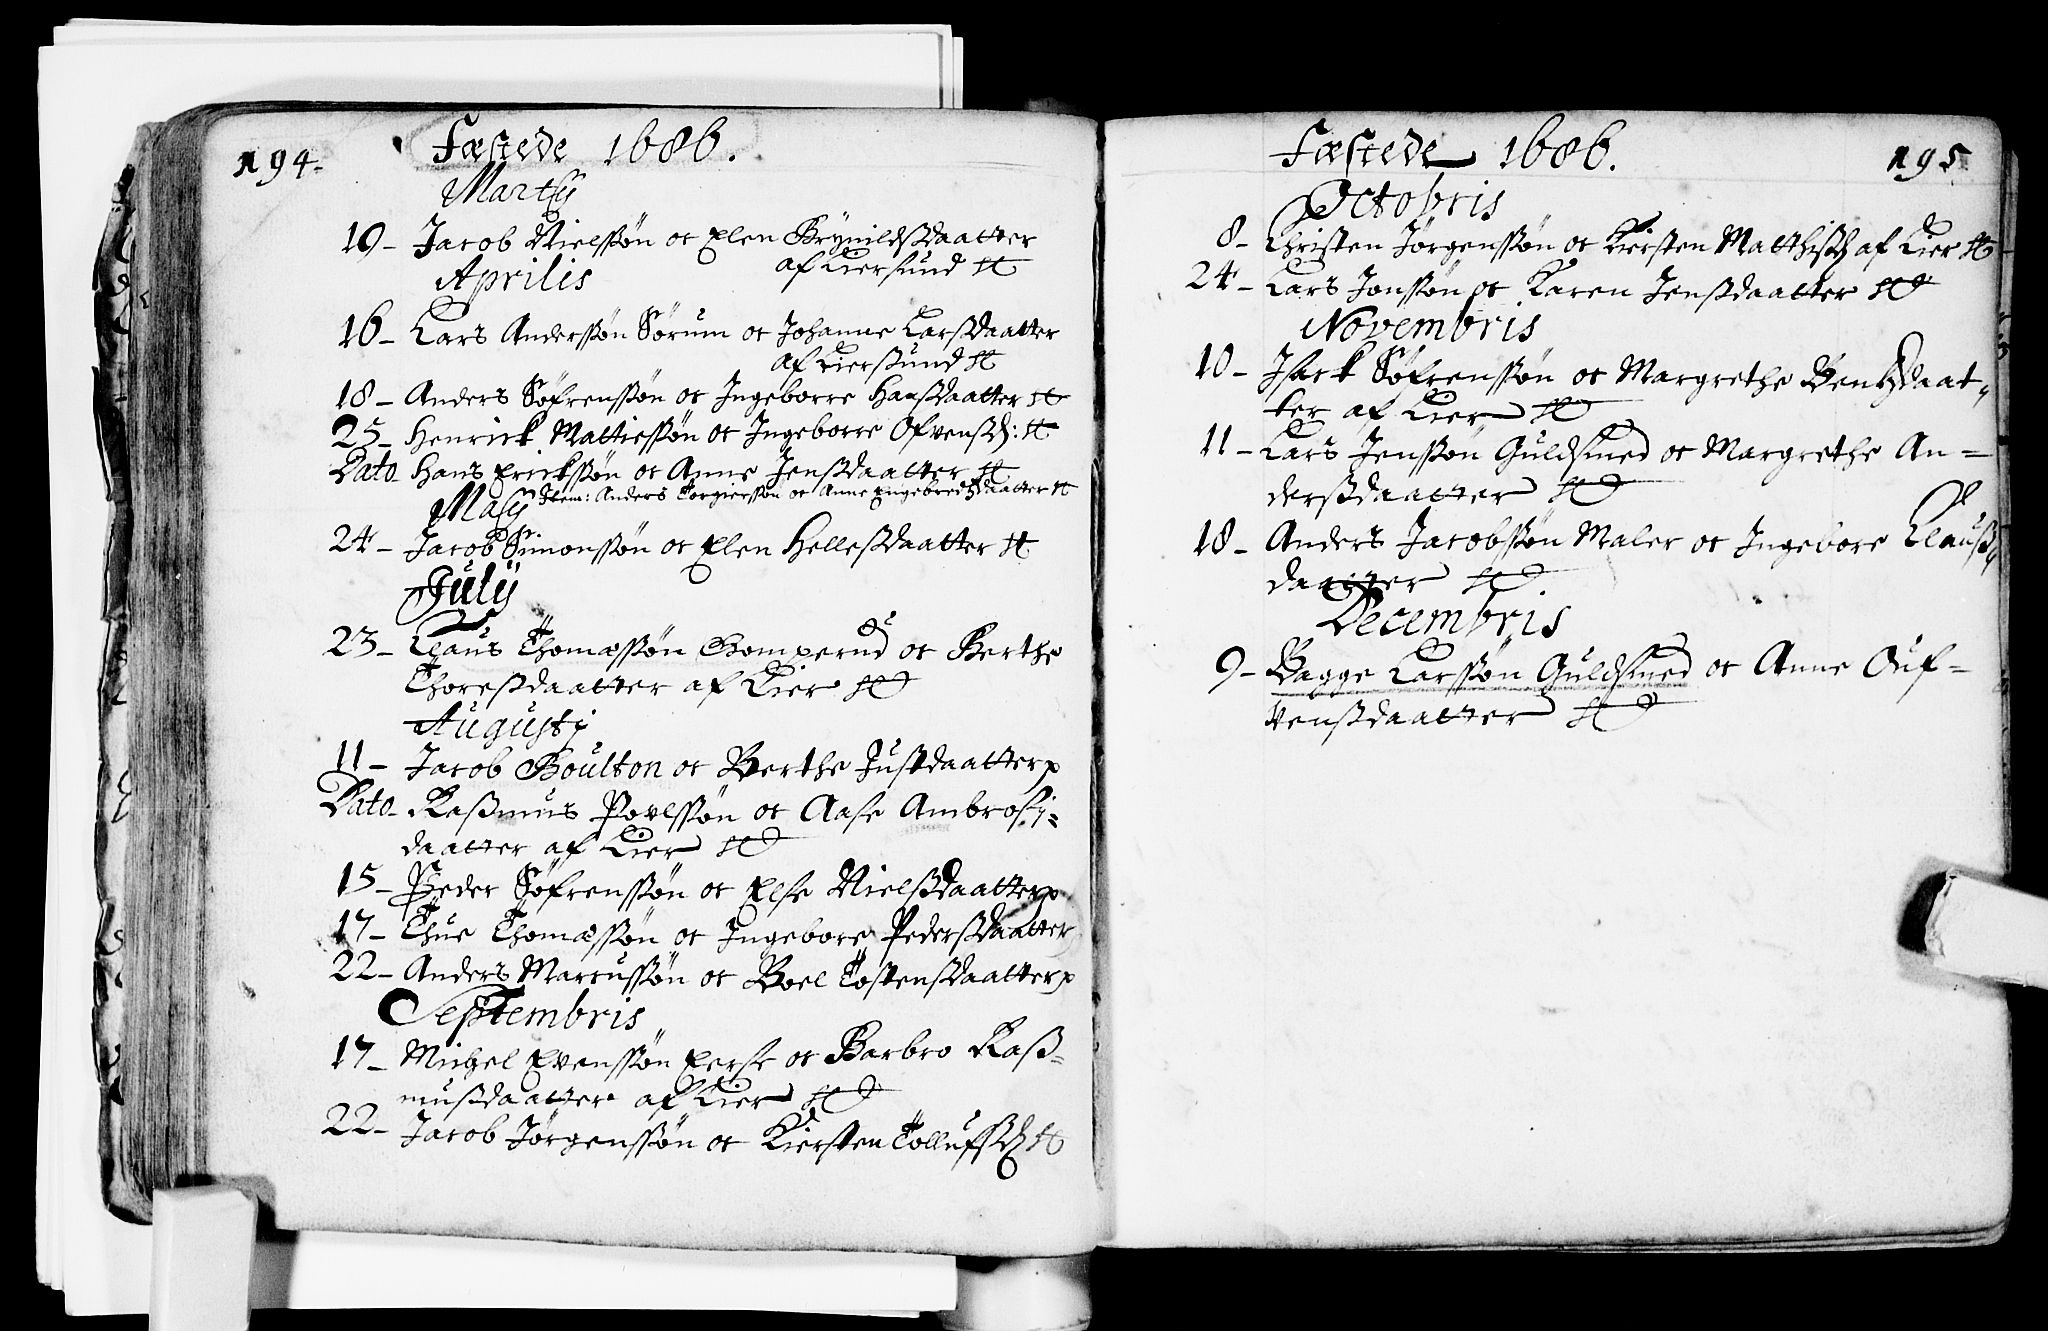 194.
Fæstede 1686.
Martij
19 – Jacob Nielssön oc Elen Brynildsdaatter
af Kiersund H
Aprilis
16 – Lars Anderssön Sörum oc Johanne Larsdaatter
af Kiersund H
18 – Anders Söfrenssön oc Ingeborre Hansdaatter H
25 – Henrick Mattiessön oc Ingeborre Ofvensd: H
Dato – Hans Erickssön oc Anne Jensdaatter H
Item: Anders Torgierssön oc Anne Engebredtzdaatter H
Maij
24 – Jacob Simonssön oc Elen Hellesdaatter H
Julij
23 – Claus Thomæssön Gomperud oc Berthe
Thoresdaatter af Lier H
Augusti
11 – Jacob Boulton oc Berthe Justdaatter
Dato – Rasmus Povlssön oc Aase Ambrosij=
daatter af Lier H
15 – Peder Söfrenssön oc Else Nielsdaatter
17 – Thue Thomæssön oc Ingebore Pedersdaatter
22 – Anders Marcussön oc Boel Tostensdaatter
Septembris
17 – Michel Evenssön oc Barbro Ras=
musdaatter af Lier H
22 – Jacob Jörgenssön oc Kiersten Tollufsd H
Fæstede 1686.
195
Octobris
8 – Christen Jörgenssön oc Kiersten Matthisd af Lier H
24 – Lars Jonssön oc Karen Jensdaatter H
Novembris
10 – Isack Söfrenssön oc Margrethe Bentzdaat=
ter af Lier H
11 – Lars Jenssön Guldsmed oc Margrethe An=
dersdaatter H
18 – Anders Jacobssön Maler oc Ingebore Clauss=
daatter H
Decembris
9 – Bagge Larssön Guldsmed oc Anne Ouf=
vensdaatter H